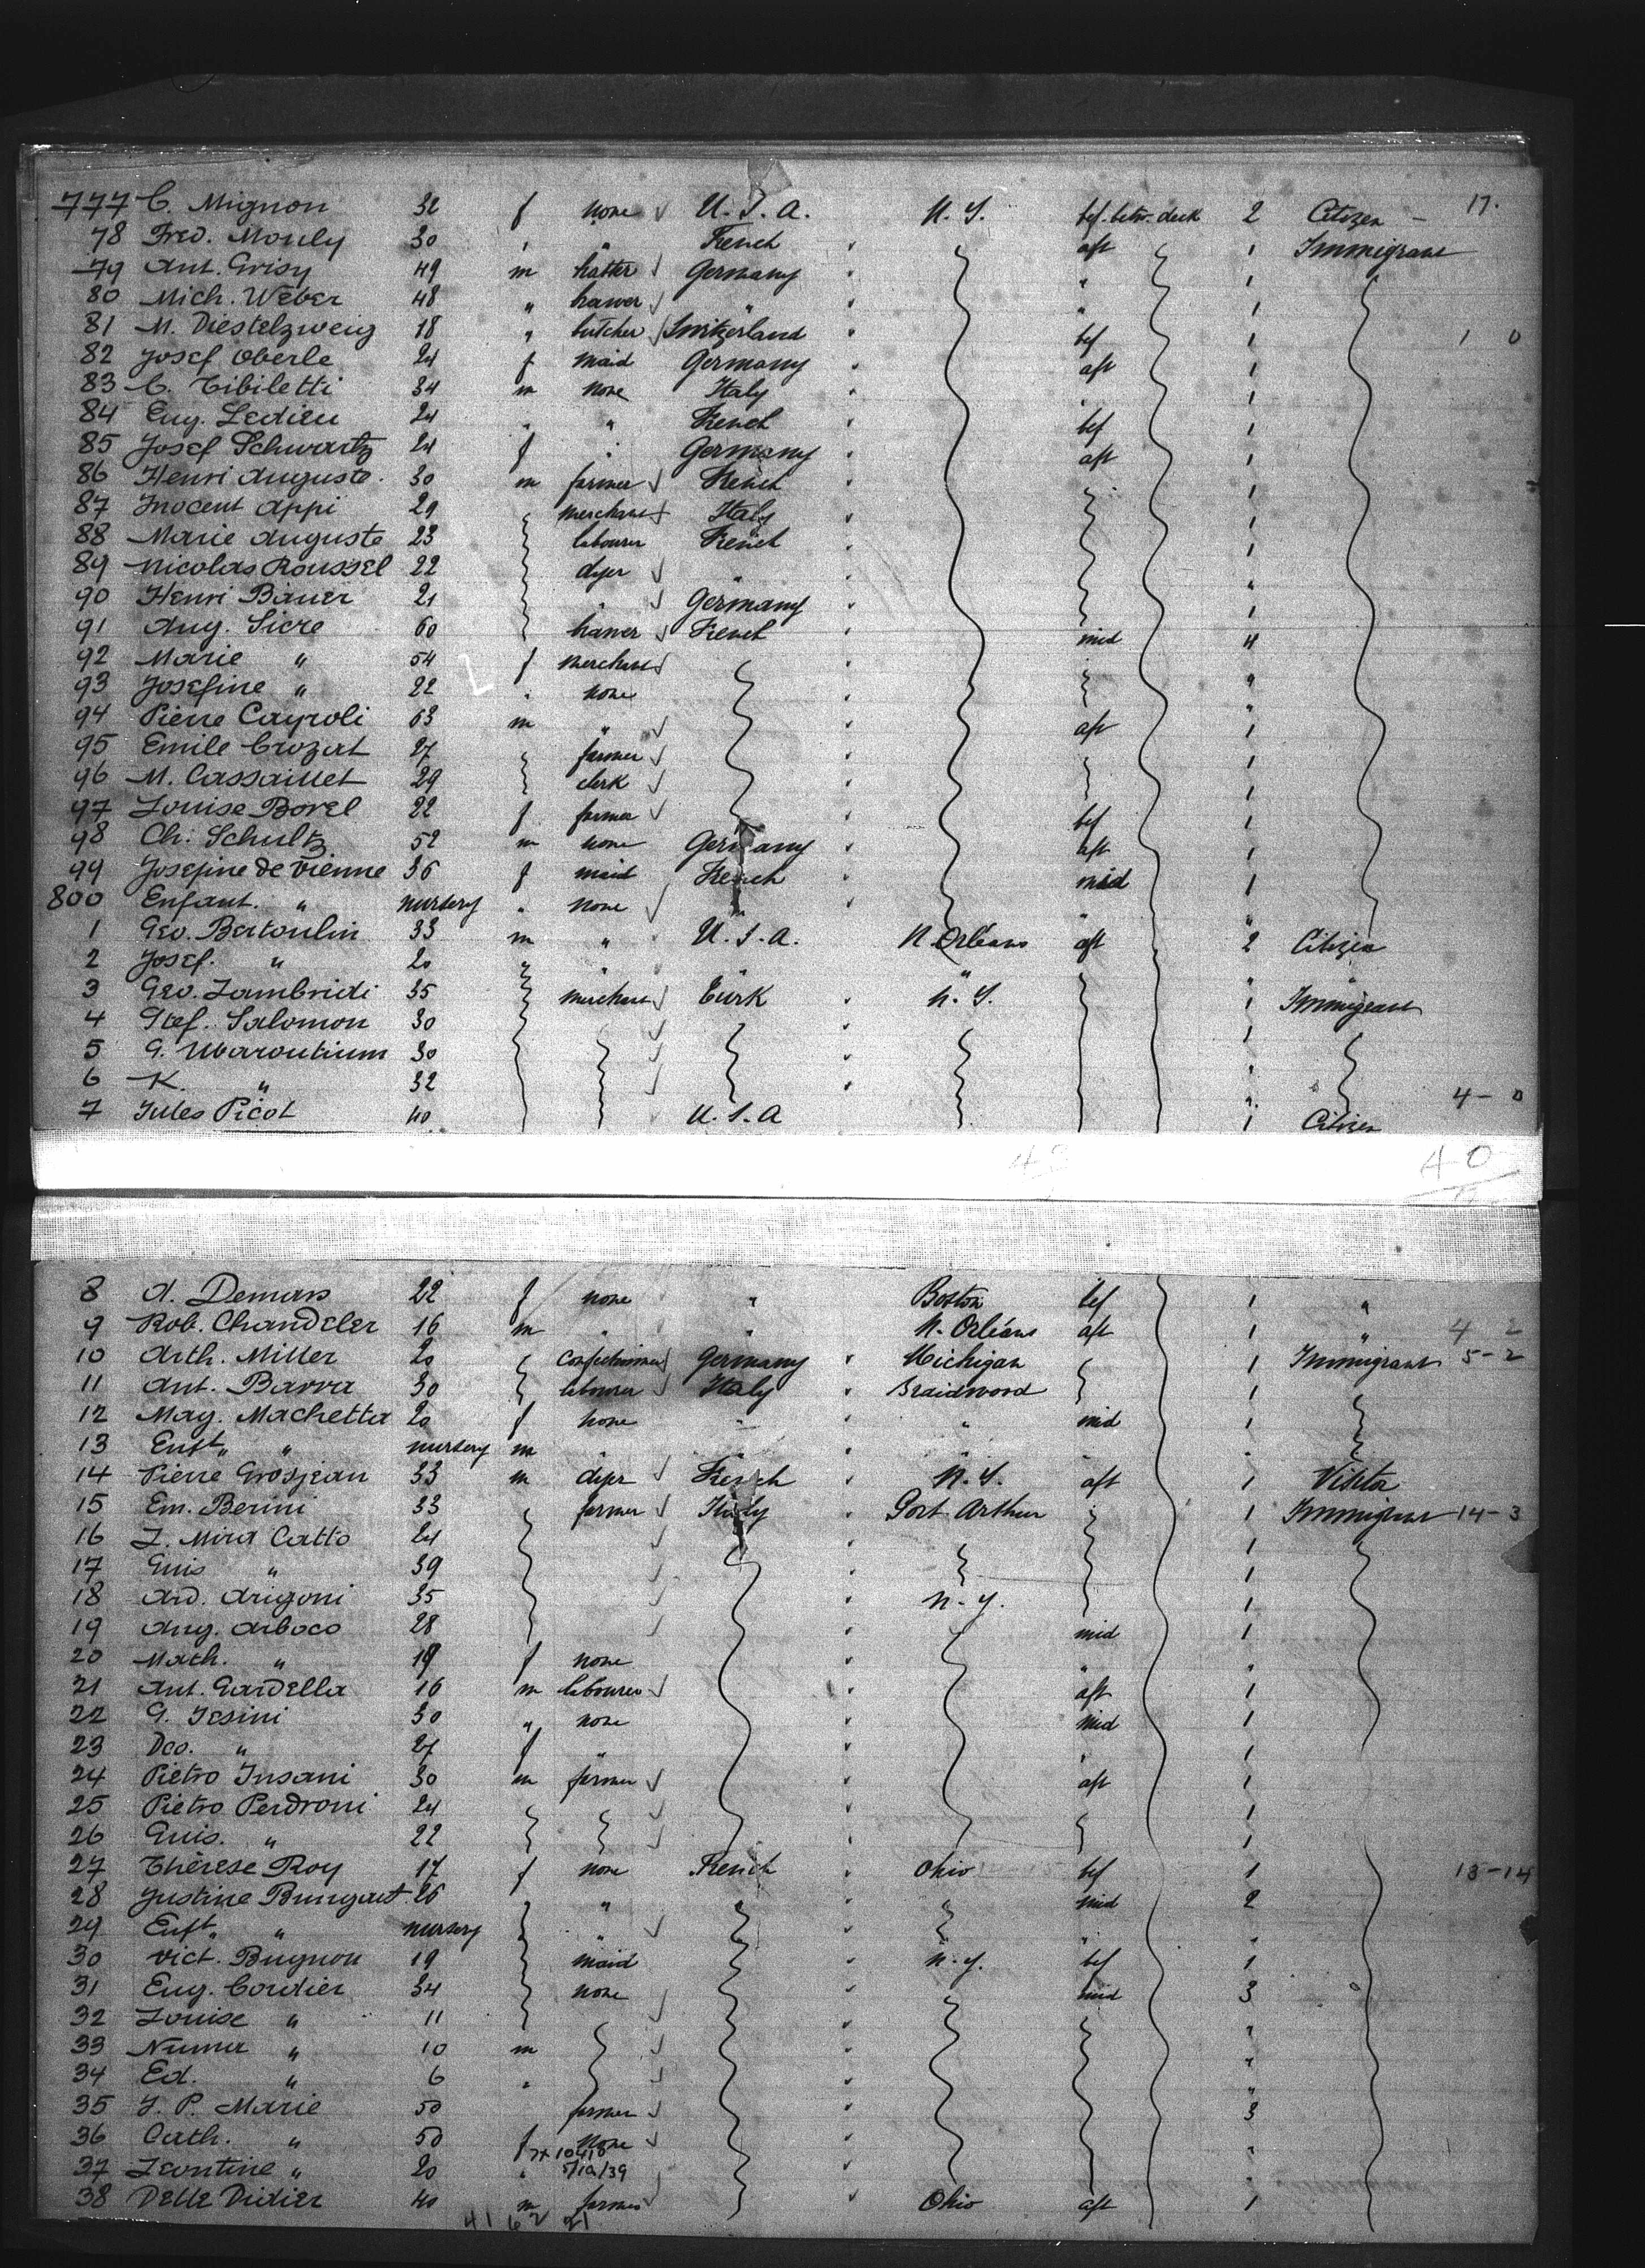 777 C. Mignon 32 f none U.S.A. N.Y. bef. betw. deck 2 Citizen - 17.
78 Fred. Mouly 30 " " French aft 1 Immigrant
79 Ant. Grisy 49 m hatter Germany " 1
80 Mich. Weber 48 " " " 1
81 M. Diestelzweig 18 " butcher Switzerland bef 1 1 0
82 Josef Oberle 24 f maid Germany aft 1
83 C. Tibiletti 34 m none Italy " 1
84 Eug. Ledieu 24 " " French bef 1
85 Josef Schwartz 24 f " Germany aft 1
86 Henri Auguste 30 m farmer French 1
87 Inocent Appi 29 merchant Italy 1
88 Marie Auguste 23 labourer French 1
89 Nicolas Roussel 22 dyer " "
90 Henri Bauer 21 " Germany 1
91 Aug. Sicre 60 French mid 4
92 Marie " 54 f merchant "
93 Josefine " 22 " none "
94 Pierre Cayroli 63 m " aft 1
95 Emile Crozat 27 farmer 1
96 M. Cassaillet 29 clerk 1
97 Louise Borel 22 f farmer bef 1
98 Ch. Schultz 52 m none Germany aft 1
99 Josefine de Vienne 36 f maid French mid 1
800 Enfant. " nursery " none " " "
1 Geo. Bertoulin 33 m " U.S.A. N. Orléans aft 2 Citizen
2 Josef. " 20 " " " " "
3 Geo. Lambridi 35 merchant Turk N.Y. 1 Immigrant
4 Stef. Salomon 30 1
5 G. Maroutium 30 "
6 K. " 32 " 4 - 0
7 Jules Picot 40 U.S.A 1 Citizen
40
8 A. Demars 22 f none " Boston bef 1 "
9 Rob. Chandeler 16 m " " N. Orléans aft 1 " 4 2
10 Arth. Miller 20 confectioner Germany Michigan 1 Immigrant 5 - 2
11 Ant. Barra 30 labourer Italy Braidwood 1
12 Mag. Machetta 20 f none " " mid 1
13 Enft " " nursery m " " " " "
14 Pierre Grosjean 33 m dyer French N.Y. aft 1 Visitor
15 Em. Berini 33 farmer Italy Port Arthur 1 Immigrant 14 - 3
16 L. Mira Catto 24 1
17 Guis " 39 1
18 And. Arigoni 35 N.Y. 1
19 Aug. Arboco 28 mid 1
20 Math. " 19 f none " "
21 Ant. Gardella 16 m labourer aft 1
22 G. Iesini 30 " none mid 1
23 Dco. " 27 f " " 1
24 Pietro Insani 30 m farmer aft 1
25 Pietro Perdroni 24 1
26 Guis. " 22 1
27 Thérèse Roy 17 f none French Ohio bef 1 13-14
28 Justine Bungart 26 " " mid 2
29 Enft " " nursery " " "
30 Vict. Bugnon 19 maid N.Y. bef 1
31 Eug. Cordier 34 none mid 3
32 Louise " 11 "
33 Numa " 10 m "
34 Ed. " 6 " "
35 J. P. Marie 50 farmer 3
36 Cath. " 50 f none "
37 Leontine " 20 " 5/19/39 "
38 Delle Didier 40 m farmer Ohio aft 1
41 62 21